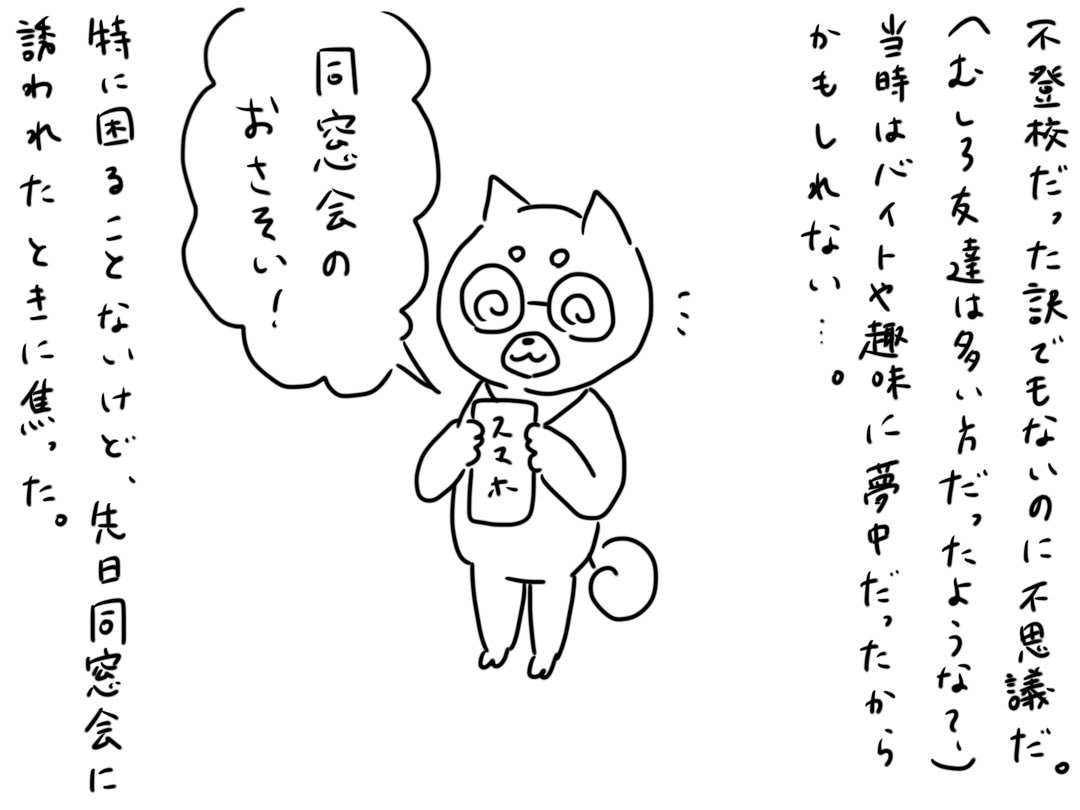 不登校だった訳でもないのに不思議だ。
(むしろ友達は多い方だったような？)
当時はバイトや趣味に夢中だったから
かもしれない…。
同窓会の
おさそい！
スマホ
特に困ることないけど、先日同窓会に
誘われたときに焦った。